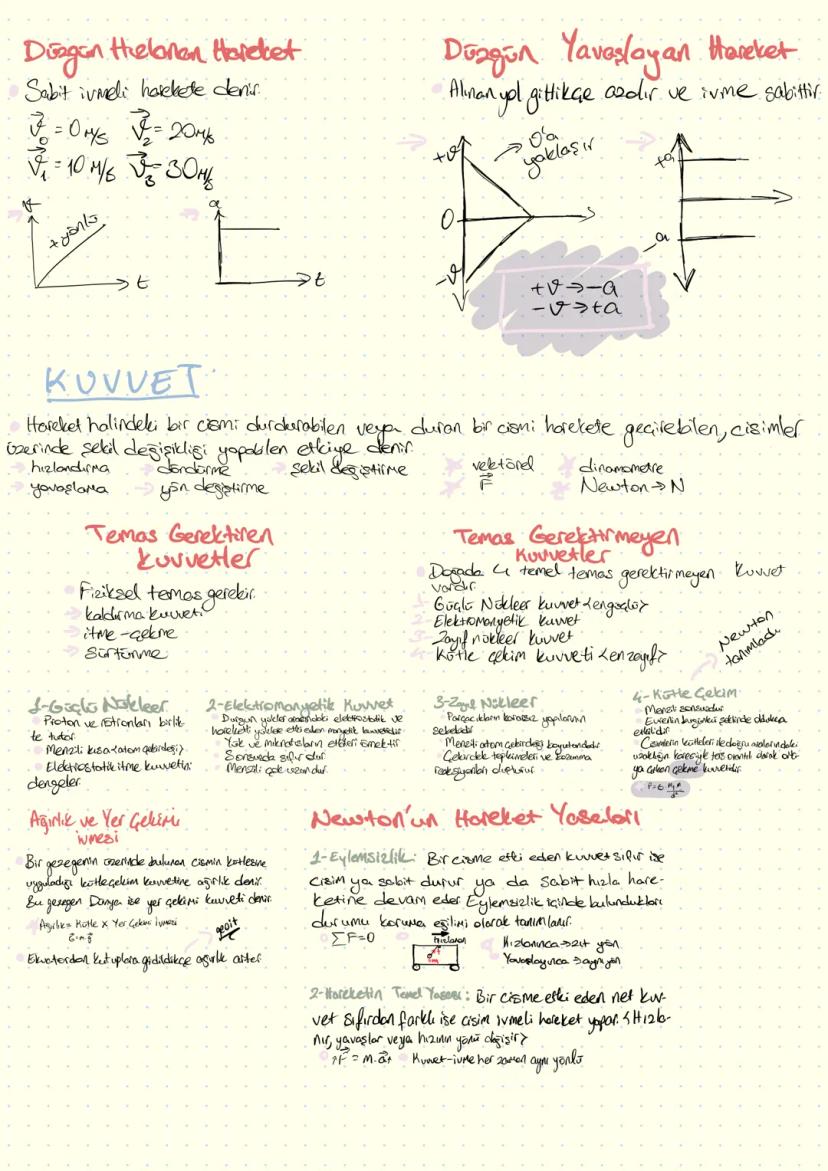 Düzgün Hızlanan Hareket
Sabit ivmeli harekete denir.
v₀ = 0 m/s v₂ = 20 m/s
v₁ = 10 m/s v₃ = 30 m/s
v
+ yönlü
t
a
t
Düzgün Yavaşlayan Hareket
Alınan yol gittikçe azalır ve ivme sabittir.
+v
0'a
yaklaşır
0
-v
+a
-a
+v → -a
-v → +a
KUVVET
Hareket halindeki bir cismi durdurabilen veya duran bir cismi harekete geçirebilen, cisimler
üzerinde şekil değişikliği yapabilen etkiye denir.
hızlandırma döndürme şekil değiştirme
yavaşlama yön değiştirme
vektörel dinamometre
F Newton → N
Temas Gerektiren
Kuvvetler
Fiziksel temas gerekir.
kaldırma kuvveti
itme - çekme
sürtünme
Temas Gerektirmeyen
Kuvvetler
Doğada 4 temel temas gerektirmeyen kuvvet
vardır.
1 Güçlü Nükleer kuvvet <en güçlü>
2 Elektromanyetik kuvvet
3 Zayıf nükleer kuvvet
4 Kütle çekim kuvveti <en zayıf>
Newton
tanımladı
1-Güçlü Nükleer
Proton ve nötronları birlik
te tutar.
Menzili kısa <atom çekirdeği>
Elektrostatik itme kuvvetini
dengeler.
2-Elektromanyetik Kuvvet
Durgun yükler arasındaki elektrostatik ve
hareketli yüklere etki eden manyetik kuvvetidir.
Yük ve mıknatısların etkileri örnektir
Sonsuzda sıfırdır.
Menzili çok uzundur.
3-Zayıf Nükleer
Parçacıkların kararsız yapılarının
sebebidir
Menzili atom çekirdeği boyutundadır
Çekirdek tepkimeleri ve bozunma
reaksiyonları oluşturur
4- Kütle Çekim
Menzil sonsuzdur
Evrenin bugünkü şeklinde oldukça
etkilidir
Cisimlerin kütleleri ile doğru aralarındaki
uzaklığın karesiyle ters orantılı olarak orta
ya çıkan çekme kuvvetidir.
Ağırlık ve Yer Çekimi
ivmesi
Bir gezegenin üzerinde bulunan cismin kütlesine
uyguladığı kütle çekim kuvvetine ağırlık denir.
Bu gezegen Dünya ise yer çekimi kuvveti denir.
Ağırlık = Kütle x Yer Çekimi İvmesi
G = m.g
geoit
Ekvatordan kutuplara gidildikçe ağırlık artar
Newton'un Hareket Yasaları
1-Eylemsizlik: Bir cisme etki eden kuvvet sıfır ise
cisim ya sabit durur ya da sabit hızla hare-
ketine devam eder. Eylemsizlik içinde bulundukları
durumu koruma eğilimi olarak tanımlanır.
∑F=0
Hızlanan
Hızlanınca → zıt yön
Yavaşlayınca → aynı yön
2-Hareketin Temel Yasası: Bir cisme etki eden net kuv-
vet sıfırdan farklı ise cisim ivmeli hareket yapar. <Hızla-
nır, yavaşlar veya hızının yönü değişir>
F = m.a
Kuvvet-ivme her zaman aynı yönlü